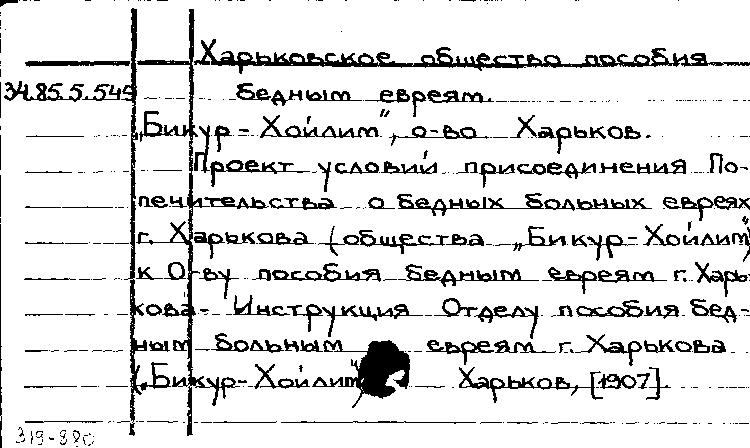 Харьковское общество пособия
34.85.5.549 бедным евреям.
„Бикур-Хойлим", о-во Харьков.
Проект условий присоединения По-
печительства о бедных больных евреях
г. Харькова (общества „Бикур-Хойлим")
к О-ву пособия бедным евреям г. Харь-
кова- Инструкция Отделу пособия бед-
ным больным евреям г. Харькова
(„Бикур-Хойлим" Харьков, [1907].